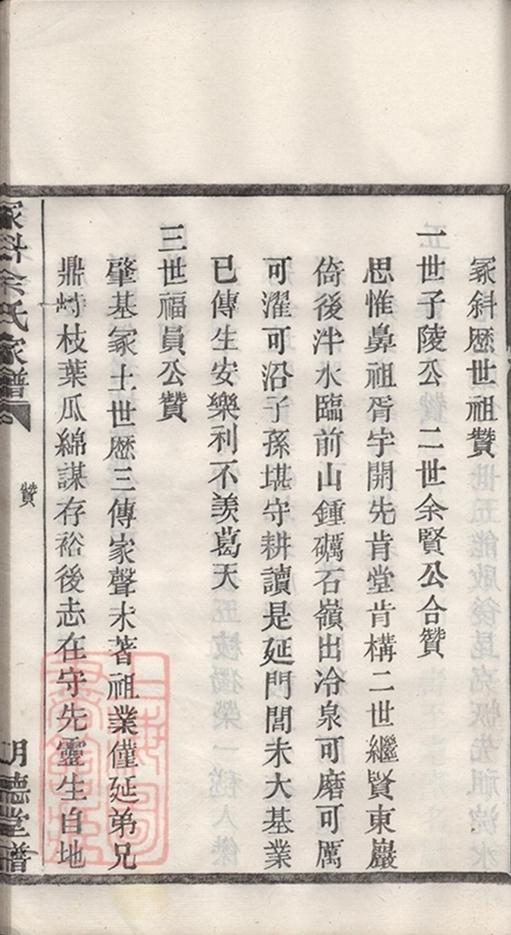 冢斜歴世祖贊
一世子陵公　二世余賢公合贊
思惟鼻祖胥宇開先肯堂肯構二世繼賢東巖
倚後泮水臨前山鍾礪石嶺出冷泉可磨可厲
可濯可沿子孫堪守耕讀是延門閭未大基業
已傳生安樂利不羨葛天
三世福員公贊
肇基冢土世歴三傳家聲未著祖業僅延弟兄
鼎峙枝葉瓜綿謀存裕後志在守先靈生自地
冢斜余氏家譜
贊
明德堂譜